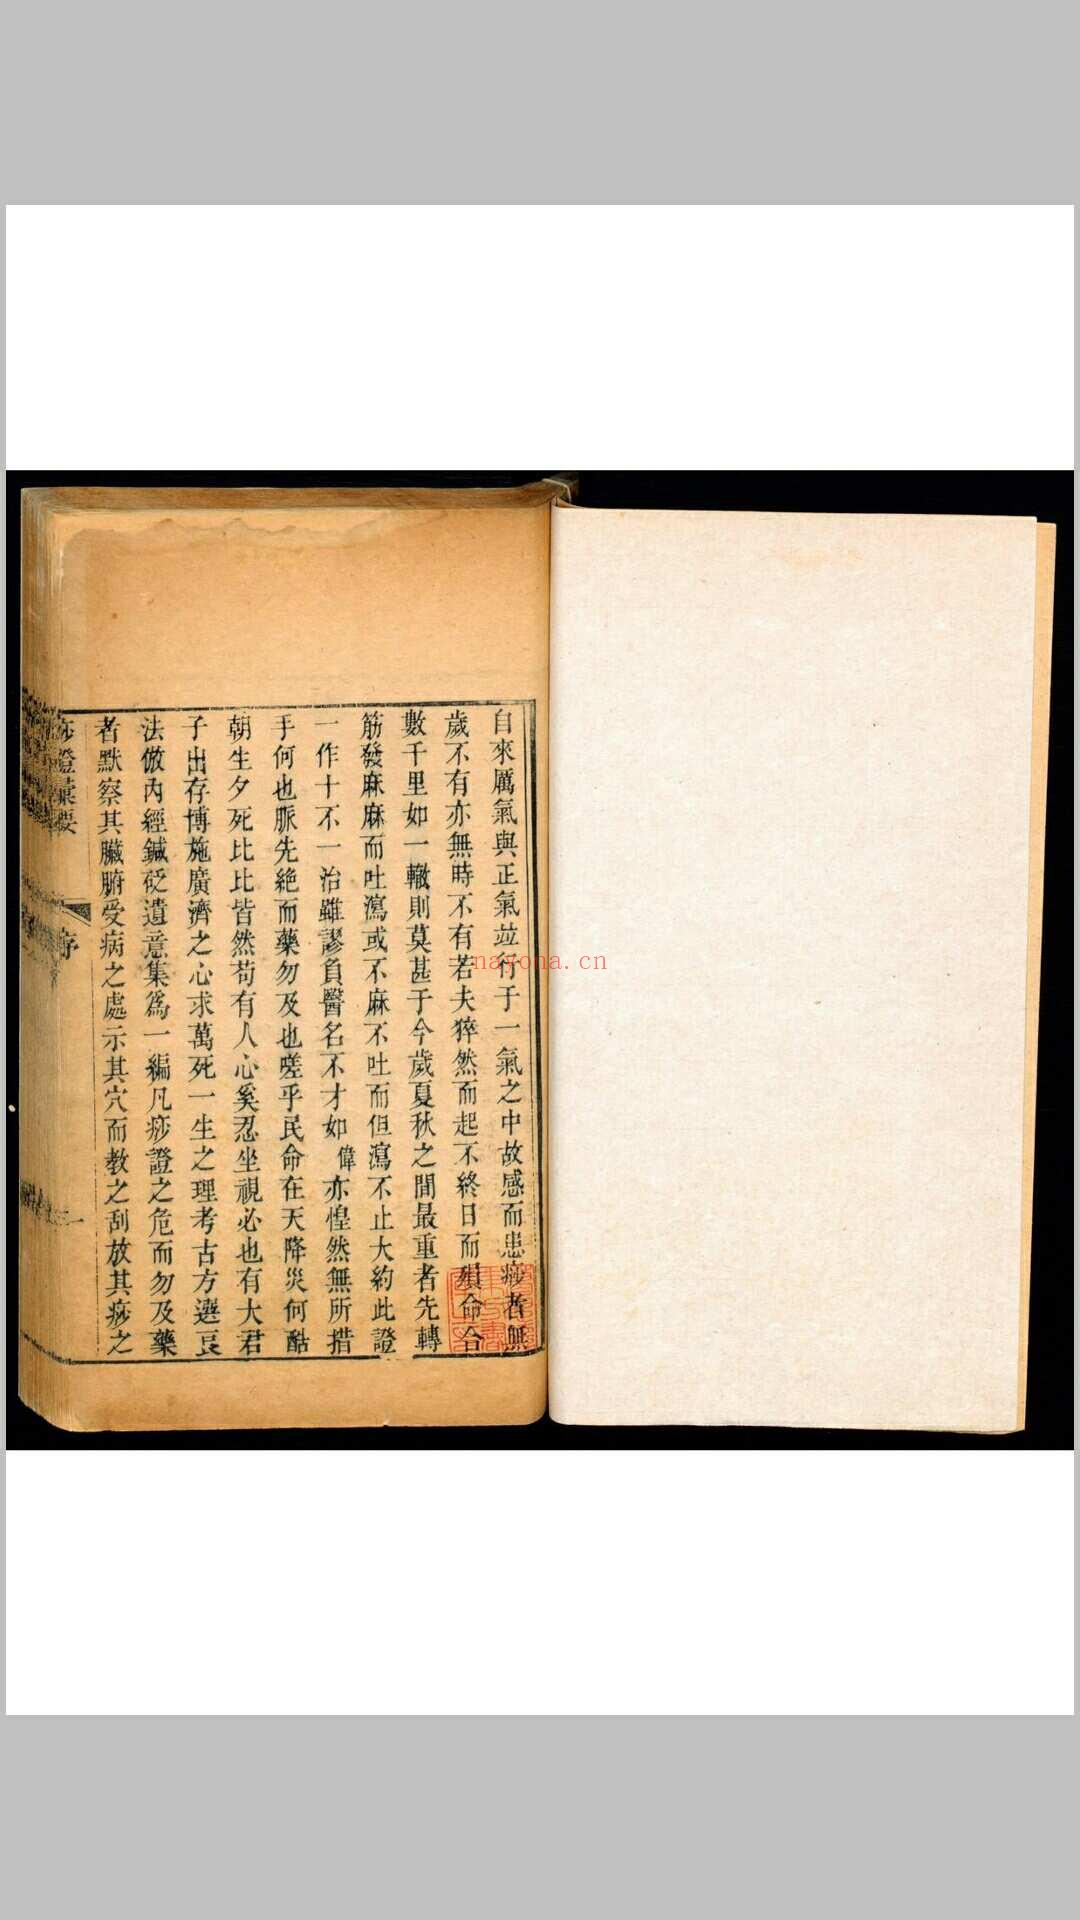 自來厲氣與正氣竝行于一氣之中故感而患痧者無
歲不有亦無時不有若夫猝然而起不終日而殞命合
數千里如一轍則莫甚于今歲夏秋之間最重者先轉
筋發麻麻而吐瀉或不麻不吐而但瀉不止大約此證
一作十不一治雖謬負醫名不才如偉亦惶然無所措
手何也脈先絶而藥勿及也嗟乎民命在天降災何酷
朝生夕死比比皆然苟有人心奚忍坐視必也有大君
子出存博施廣濟之心求萬死一生之理考古方選良
法倣內經鍼砭遺意集爲一編凡痧證之危而勿及藥
者默察其臟腑受病之處示其穴而教之刮放其痧之
痧證彙要
序
nayona.cn